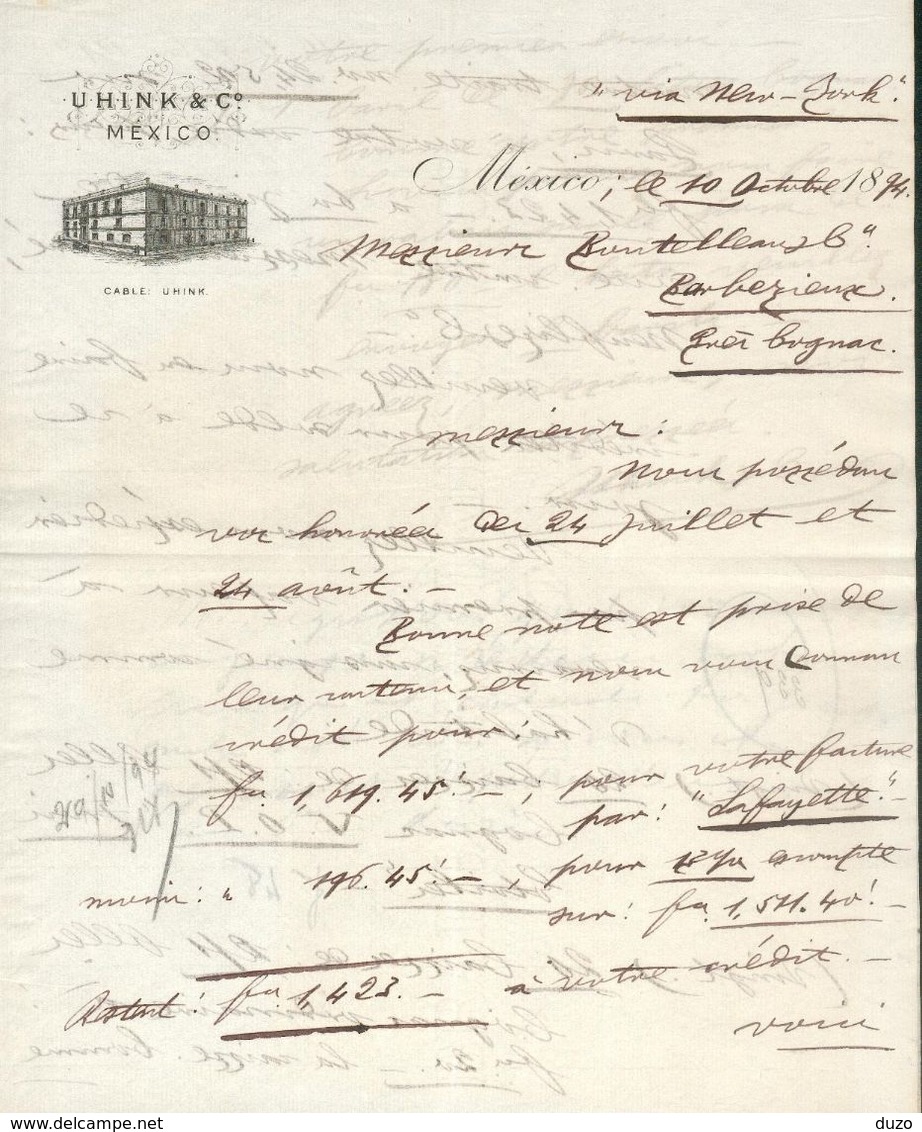 UHINK & Cº
MEXICO.
CABLE: UHINK.
"via New-York".
México, le 10 Octobre 1894.
Messieurs Boutelleau & Cº.
Barbezieux.
Près Cognac.
Messieurs:
Nous possédons
vos honorées des 24 Juillet et
24 août.-
Bonne note est prise de
leur contenu, et nous vous donnons
crédit pour:
fs. 1,619.45!-, pour votre facture
par: "Lafayette".-
moins: " 196.45!-, pour 13% escompte
sur: fs. 1,511.40!-
Restent: fs. 1,423.- à votre crédit.-
voici
duzo